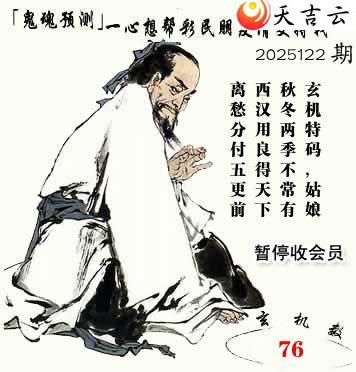 天吉云
「鬼魂预测」一心想帮彩民朋
2025122 期
玄机特码，姑娘
秋冬两季不常有
西汉用良得天下
离愁分付五更前
暂停收会员
玄机数
76